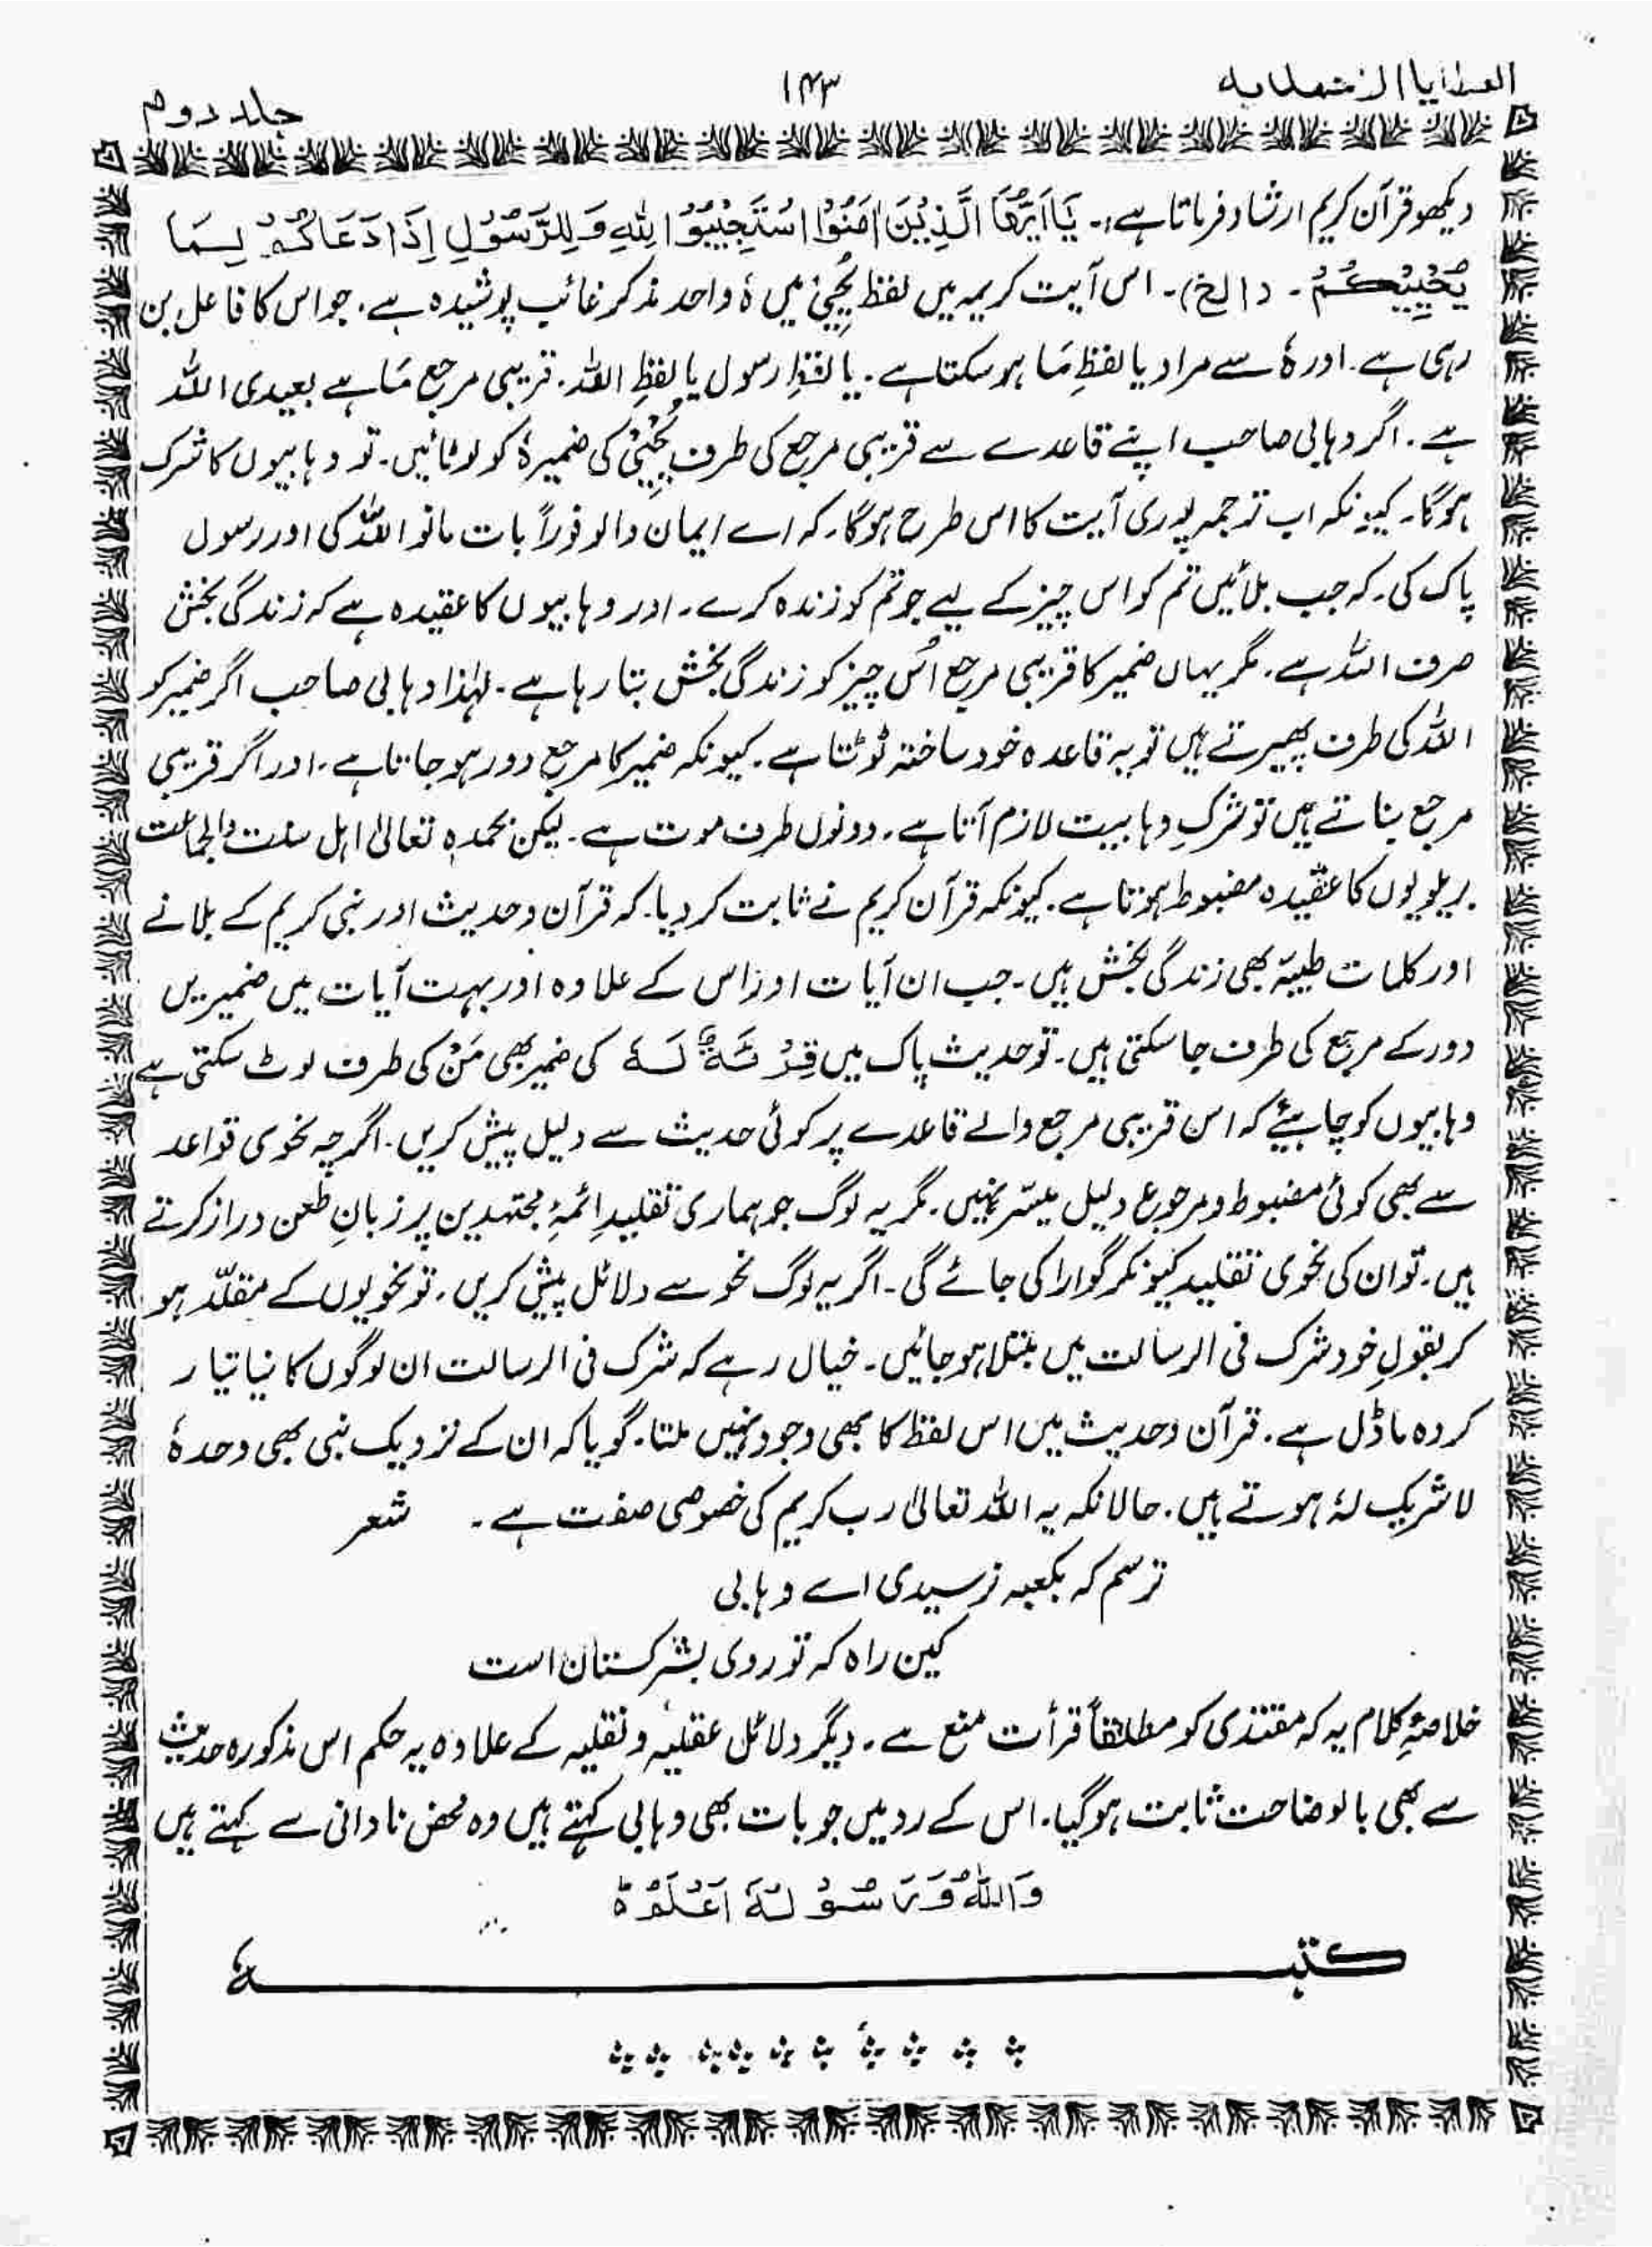 العطایا الاحمدیه
۱۴۳
جلد دوم
دیکھو قرآن کریم ارشاد فرماتا ہے :۔ یَا اَیُّھَا الَّذِیْنَ اٰمَنُوْا اسْتَجِیْبُوْا لِلّٰہِ وَ لِلرَّسُوْلِ اِذَا دَعَاکُمْ لِمَا
یُحْیِیْکُمْ ۔ (الخ)۔ اس آیت کریمہ میں لفظ یُحْیِیْ میں ہٗ واحد مذکر غائب پوشیدہ ہے۔ جو اس کا فاعل بن
رہی ہے۔ اور ہٗ سے مراد یا لفظِ مَا ہو سکتا ہے۔ یا لفظِ رسول یا لفظِ اللہ۔ قریبی مرجع مَا ہے بعیدی اللہ
ہے۔ اگر وہابی صاحب اپنے قاعدے سے قریبی مرجع کی طرف یُحْیِیْ کی ضمیر ہٗ کو لوٹائیں۔ تو وہابیوں کا شرک
ہوگا۔ کیونکہ اب ترجمہ پوری آیت کا اس طرح ہوگا۔ کہ اے ایمان والو فوراً بات مانو اللہ کی اور رسول
پاک کی۔ کہ جب بلائیں تم کو اس چیز کے لیے جو تم کو زندہ کرے۔ اور وہابیوں کا عقیدہ ہے کہ زندگی بخش
صرف اللہ ہے۔ مگر یہاں ضمیر کا قریبی مرجع اُس چیز کو زندگی بخش بتا رہا ہے۔ لہٰذا وہابی صاحب اگر ضمیر کو
اللہ کی طرف پھیرتے ہیں تو یہ قاعدہ خود ساختہ ٹوٹتا ہے۔ کیونکہ ضمیر کا مرجع دور ہو جاتا ہے۔ اور اگر قریبی
مرجع بناتے ہیں تو شرکِ وہابیت لازم آتا ہے۔ دونوں طرف موت ہے۔ لیکن بحمدہٖ تعالیٰ اہل سنت والجماعت
بریلویوں کا عقیدہ مضبوط ہوتا ہے۔ کیونکہ قرآن کریم نے ثابت کر دیا۔ کہ قرآن و حدیث اور نبی کریم کے بلانے
اور کلمات طیبہ بھی زندگی بخش ہیں۔ جب ان آیات اور اس کے علاوہ اور بہت آیات میں ضمیریں
دور کے مرجع کی طرف جا سکتی ہیں۔ تو حدیث پاک میں لَہٗ کی ضمیر بھی مَنْ کی طرف لوٹ سکتی ہے
وہابیوں کو چاہیئے کہ اس قریبی مرجع والے قاعدے پر کوئی حدیث سے دلیل پیش کریں۔ اگرچہ نحوی قواعد
سے بھی کوئی مضبوط و مرجوع دلیل میسّر نہیں۔ مگر یہ لوگ جو ہماری تقلیدِ ائمۂ مجتہدین پر زبانِ طعن دراز کرتے
ہیں۔ تو ان کی نحوی تقلید کیونکر گوارا کی جائے گی۔ اگر یہ لوگ نحو سے دلائل پیش کریں۔ تو نحویوں کے مقلّد ہو
کر بقولِ خود شرک فی الرسالت میں مبتلا ہو جائیں۔ خیال رہے کہ شرک فی الرسالت ان لوگوں کا نیا تیار
کردہ ماڈل ہے۔ قرآن و حدیث میں اس لفظ کا بھی وجود نہیں ملتا۔ گویا کہ ان کے نزدیک نبی بھی وحدہٗ
لا شریک لہٗ ہوتے ہیں۔ حالانکہ یہ اللہ تعالیٰ رب کریم کی خصوصی صفت ہے۔ شعر
ترسم کہ بکعبہ نرسیدی اے وہابی
کین راہ کہ تو روی بشرکستان است
خلاصۂِ کلام یہ کہ مقتدی کو مطلقاً قرأت منع ہے۔ دیگر دلائل عقلیہ و نقلیہ کے علاوہ یہ حکم اس مذکورہ حدیث
سے بھی بالوضاحت ثابت ہوگیا۔ اس کے رد میں جو بات بھی وہابی کہتے ہیں وہ محض نادانی سے کہتے ہیں
وَاللہُ وَرَسُوْلُہٗ اَعْلَمُ ہ
کتبہٗ